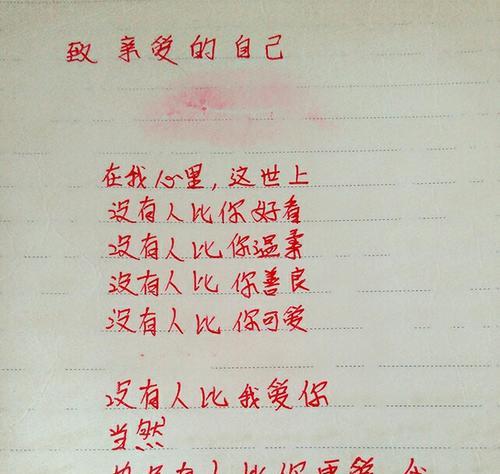 致亲爱的自己
在我心里，这世上
没有人比你好看
没有人比你温柔
没有人比你善良
没有人比你可爱
没有人比我爱你
当然
有人比你更爱我